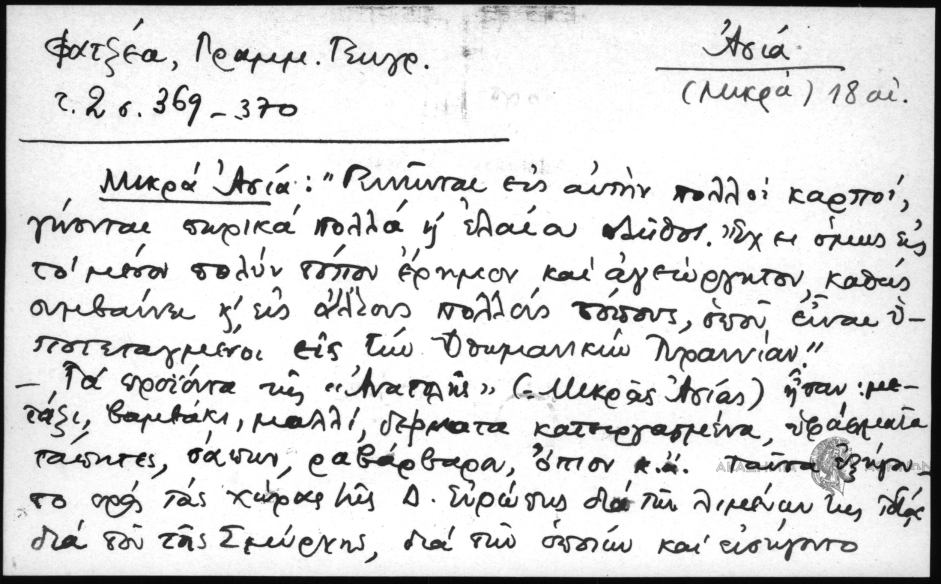 Φατζέα, Γραμμ. Γεωγρ.
τ. 2 σ. 369-370
Ἀσία
(Μικρά) 18 αἰ.
Μικρά Ἀσία: "Γεννῶνται εἰς αὐτήν πολλοί καρποί,
γίνονται σιρικά πολλά ἡ ἐλαία πλῆθος. Ἔχει ὅμως εἰς
τό μέσον πολύν τόπον ἔρημον καί ἀγεώργητον, καθώς
συμβαίνει κ' εἰς ἄλλους πολλούς τόπους, ὁποῦ εἶναι ὑ-
ποτεταγμένοι εἰς τήν Ὀθωμανικήν Τυραννίαν".
- Τά προϊόντα τῆς "Ἀνατολῆς" (= Μικρᾶς Ἀσίας) ἦσαν: με-
τάξι, βαμβάκι, μαλλί, δέρματα κατειργασμένα, ὑφάσματα
τάπητες, σάπων, ραβάρβαρον, ὄπιον κ.ἄ. Ταῦτα ἐξήγον-
το πρός τάς χώρας τῆς Δ. Εὐρώπης διά τῶν λιμένων της ἰδίᾳ
διά τοῦ τῆς Σμύρνης, διά τῶν ὁποίων καί εἰσήγοντο